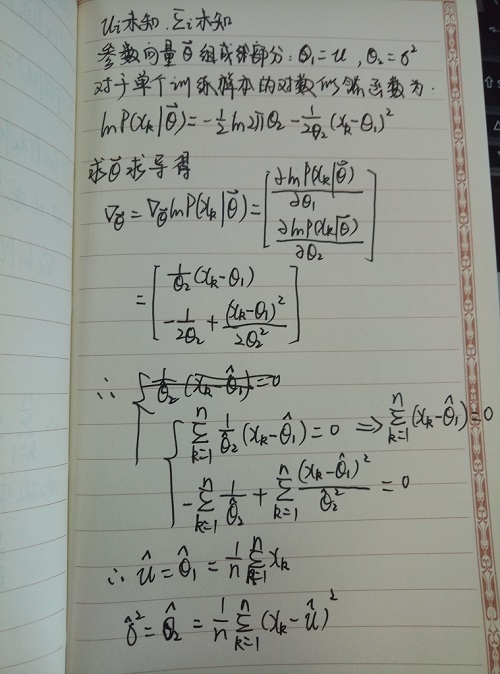 Ui未知.Σi未知
参数向量θ⃗组成部分:θ₁=u,θ₂=σ²
对于单个训练样本的对数似然函数为.
lnP(xₖ|θ⃗)=-1/2 ln2πθ₂-1/(2θ₂)(xₖ-θ₁)²
求θ⃗求导得
∇_θ⃗=∇_θ⃗lnP(xₖ|θ⃗)=[∂lnP(xₖ|θ⃗)/∂θ₁
∂lnP(xₖ|θ⃗)/∂θ₂]
=[1/θ₂(xₖ-θ₁)
-1/(2θ₂)+(xₖ-θ₁)²/(2θ₂²)]
∴{1/θ₂(xₖ-θ̂₁)=0
{∑ₖ₌₁ⁿ 1/θ̂₂(xₖ-θ̂₁)=0 ⇒∑ₖ₌₁ⁿ(xₖ-θ̂₁)=0
-∑ₖ₌₁ⁿ 1/θ̂₂+∑ₖ₌₁ⁿ(xₖ-θ̂₁)²/θ̂₂²=0
∴û=θ̂₁=1/n∑ₖ₌₁ⁿxₖ
σ̂²=θ̂₂=1/n∑ₖ₌₁ⁿ(xₖ-û)²